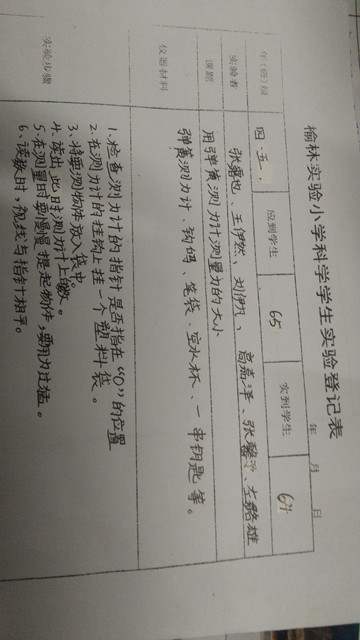 榆林实验小学科学学生实验登记表
年 月 日
年(班)级 四.五. 应到学生 65 实到学生 64
实验者 王伊然、刘伊凡、高嘉泽、张馨予、左璐雄
课题 用弹簧测力计测量力的大小
仪器材料 弹簧测力计、钩码、笔袋、空水杯、一串钥匙等。
实验步骤
1.检查测力计的指针是否指在“0”的位置
2.在测力计的挂钩上挂一个塑料袋。
3.将要测物体放入袋中
4.读出此时测力计上的数。
5.在测量时要慢慢提起物体，要用力过猛。
6.读数时，视线与指针相平。